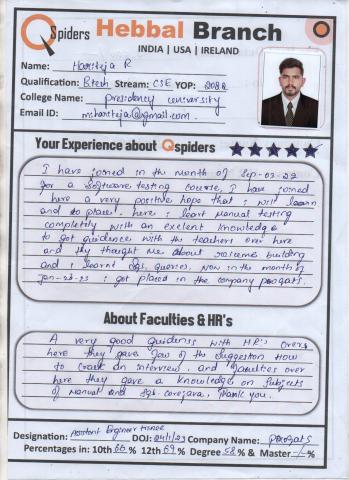 QSpiders Hebbal Branch
INDIA | USA | IRELAND
Name: Hariteja R
Qualification: Btech Stream: CSE YOP: 2022
College Name: presidency university
Email ID: @gmail.com
Your Experience about Qspiders
I have joined in the month of Sep-03-22
for a Software testing course, I have joined
here a very positive hope that i will learn
and do place. here i leart manual testing
completly with an exelent knowledge
to get guidence with the teachers over here
and they thought me about resume building
and i learnt Sql queries, now in the month of
Jan-23 i got placed in the company
About Faculties & HR's
A very good guidenss with HR's overs
here they gave few of the suggestion How
to crack an interview. and faculties over
here they gave a knowledge on subjects
of manual and Sql corejava, Thank you.
Designation: Assistant Engineer DOJ: 24/1/23 Company Name:
Percentages in: 10th 60 % 12th 69 % Degree 58 % & Master - %